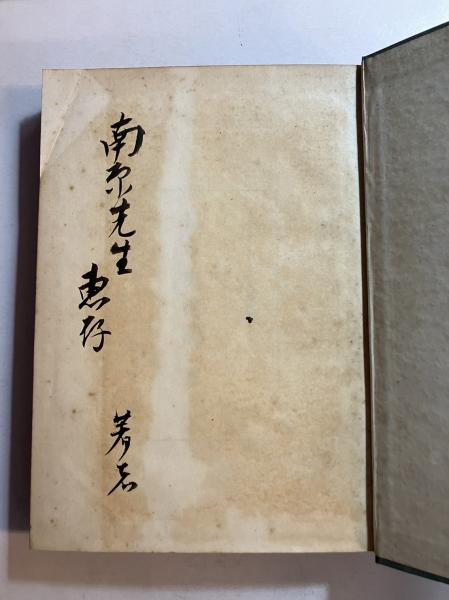 南原先生
恵存
著者